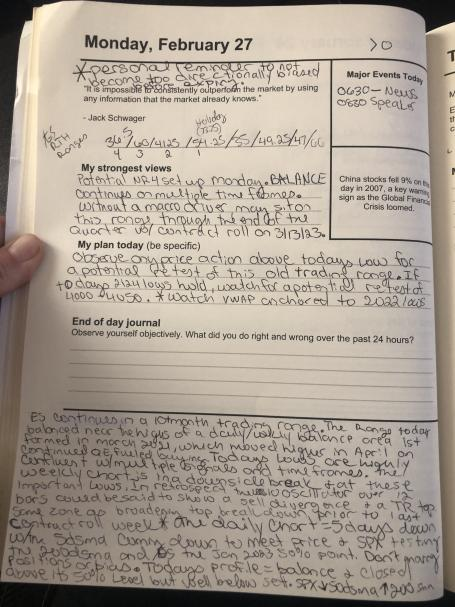 Monday, February 27
>0
* personal reminder to not
become too directionally biased
"It is impossible to consistently outperform the market by using
any information that the market already knows."
- Jack Schwager
Major Events Today
0630 - News
0830 Speaker
Holiday
* ES RTH Ranges
4 3 2 1
My strongest views
Potential NR4 setup monday. BALANCE
continues on multiple time frames.
Without a macro driver, may sit on
this range through the end of the
Quarter w/ contract roll on 3/13/23.
China stocks fell 9% on this
day in 2007, a key warning
sign as the Global Financial
Crisis loomed.
My plan today (be specific)
Observe any price action above todays low for
a potential retest of this old trading range. If
todays 2/24 lows hold, watch for a potential retest of
4000-4050. * Watch VWAP anchored to 2022 lows
End of day journal
Observe yourself objectively. What did you do right and wrong over the past 24 hours?
ES continues in a 10 month trading range. The Range today
balanced near the highs of a daily/weekly balance area 1st
formed in march 2021, which moved higher in April on
continued QE fueled buying. Todays lows are highly
confluent w/ multiple signals and time frames. The
weekly chart is in a downside break at these
important lows. In retrospect the 3/10 oscillator over 12
bars could be said to show a sell divergence & a TR top
same zone as broadening top break lows prior to last
contract roll week * the daily chart = 5 days down
w/ the 50dsma coming down to meet price & SPX testing
the 200dsma and ES the Jan 2023 50% point. Don't marry
positions or bias. Todays profile = balance & closed
above its 50% level but well below set. SPX ↓ 50dsma ↑ 200 sma